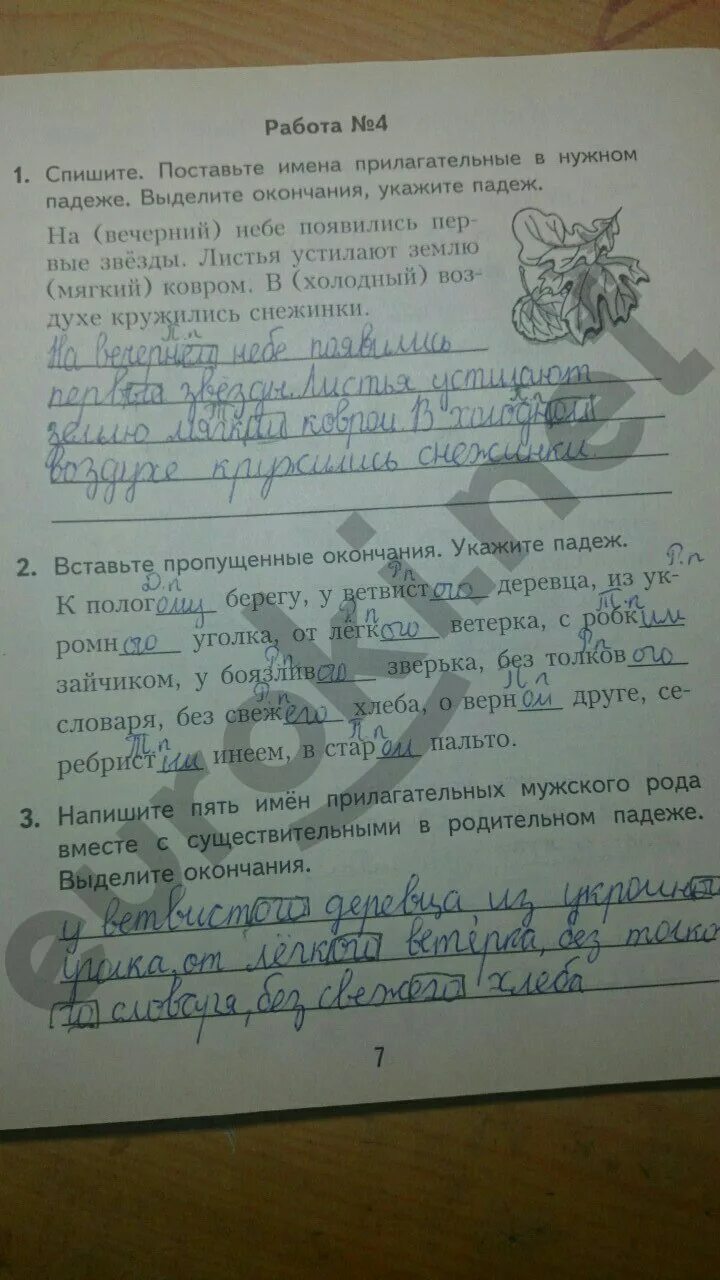 Работа №4
1. Спишите. Поставьте имена прилагательные в нужном
падеже. Выделите окончания, укажите падеж.
На (вечерний) небе появились пер-
вые звёзды. Листья устилают землю
(мягкий) ковром. В (холодный) воз-
духе кружились снежинки.
П.п
На вечернего небе появились
первыа звёзды. Листья устилают
Т
землю мягкий ковром. В холодном
воздухе кружились снежинки.
2. Вставьте пропущенные окончания. Укажите падеж.
Д.п Р.п Р.п
К пологому берегу, у ветвистого деревца, из ук-
Р.п Т.п
ромного уголка, от лёгкого ветерка, с робким
Р.п Р.п
зайчиком, у боязливого зверька, без толкового
Р.п П.п
словаря, без свежего хлеба, о верном друге, се-
Т.п П.п
ребристим инеем, в старом пальто.
3. Напишите пять имён прилагательных мужского рода
вместе с существительными в родительном падеже.
Выделите окончания.
у ветвистого деревца из укромно
уголка, от лёгкого ветерка, без толко
го словаря, без свежего хлеба
7
euroki.net